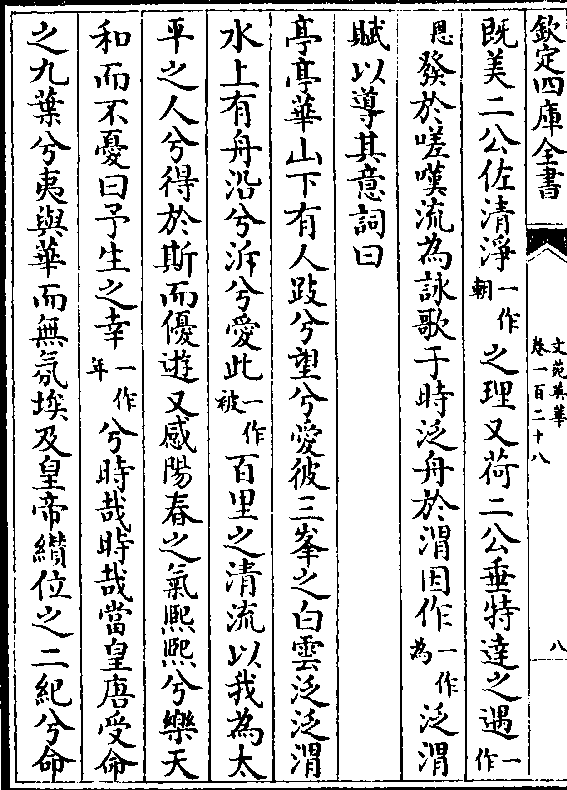 欽定四庫全書
文苑英華
卷一百二十八
八
既美二公佐清淨一作朝之理又荷二公垂特達之遇一作
恩發於嗟嘆流為詠歌于時泛舟於渭因作一作為泛渭
賦以導其意詞曰
亭亭華山下有人跂兮望兮愛彼三峯之白雲泛泛渭
水上有舟沿兮泝兮愛此一作被百里之清流以我為太
平之人兮得於斯而優遊又感陽春之氣熙熙兮樂天
和而不憂曰予生之幸一作年兮時哉時哉當皇唐受命
之九葉兮夷與華而無氛埃及皇帝纘位之二紀兮命